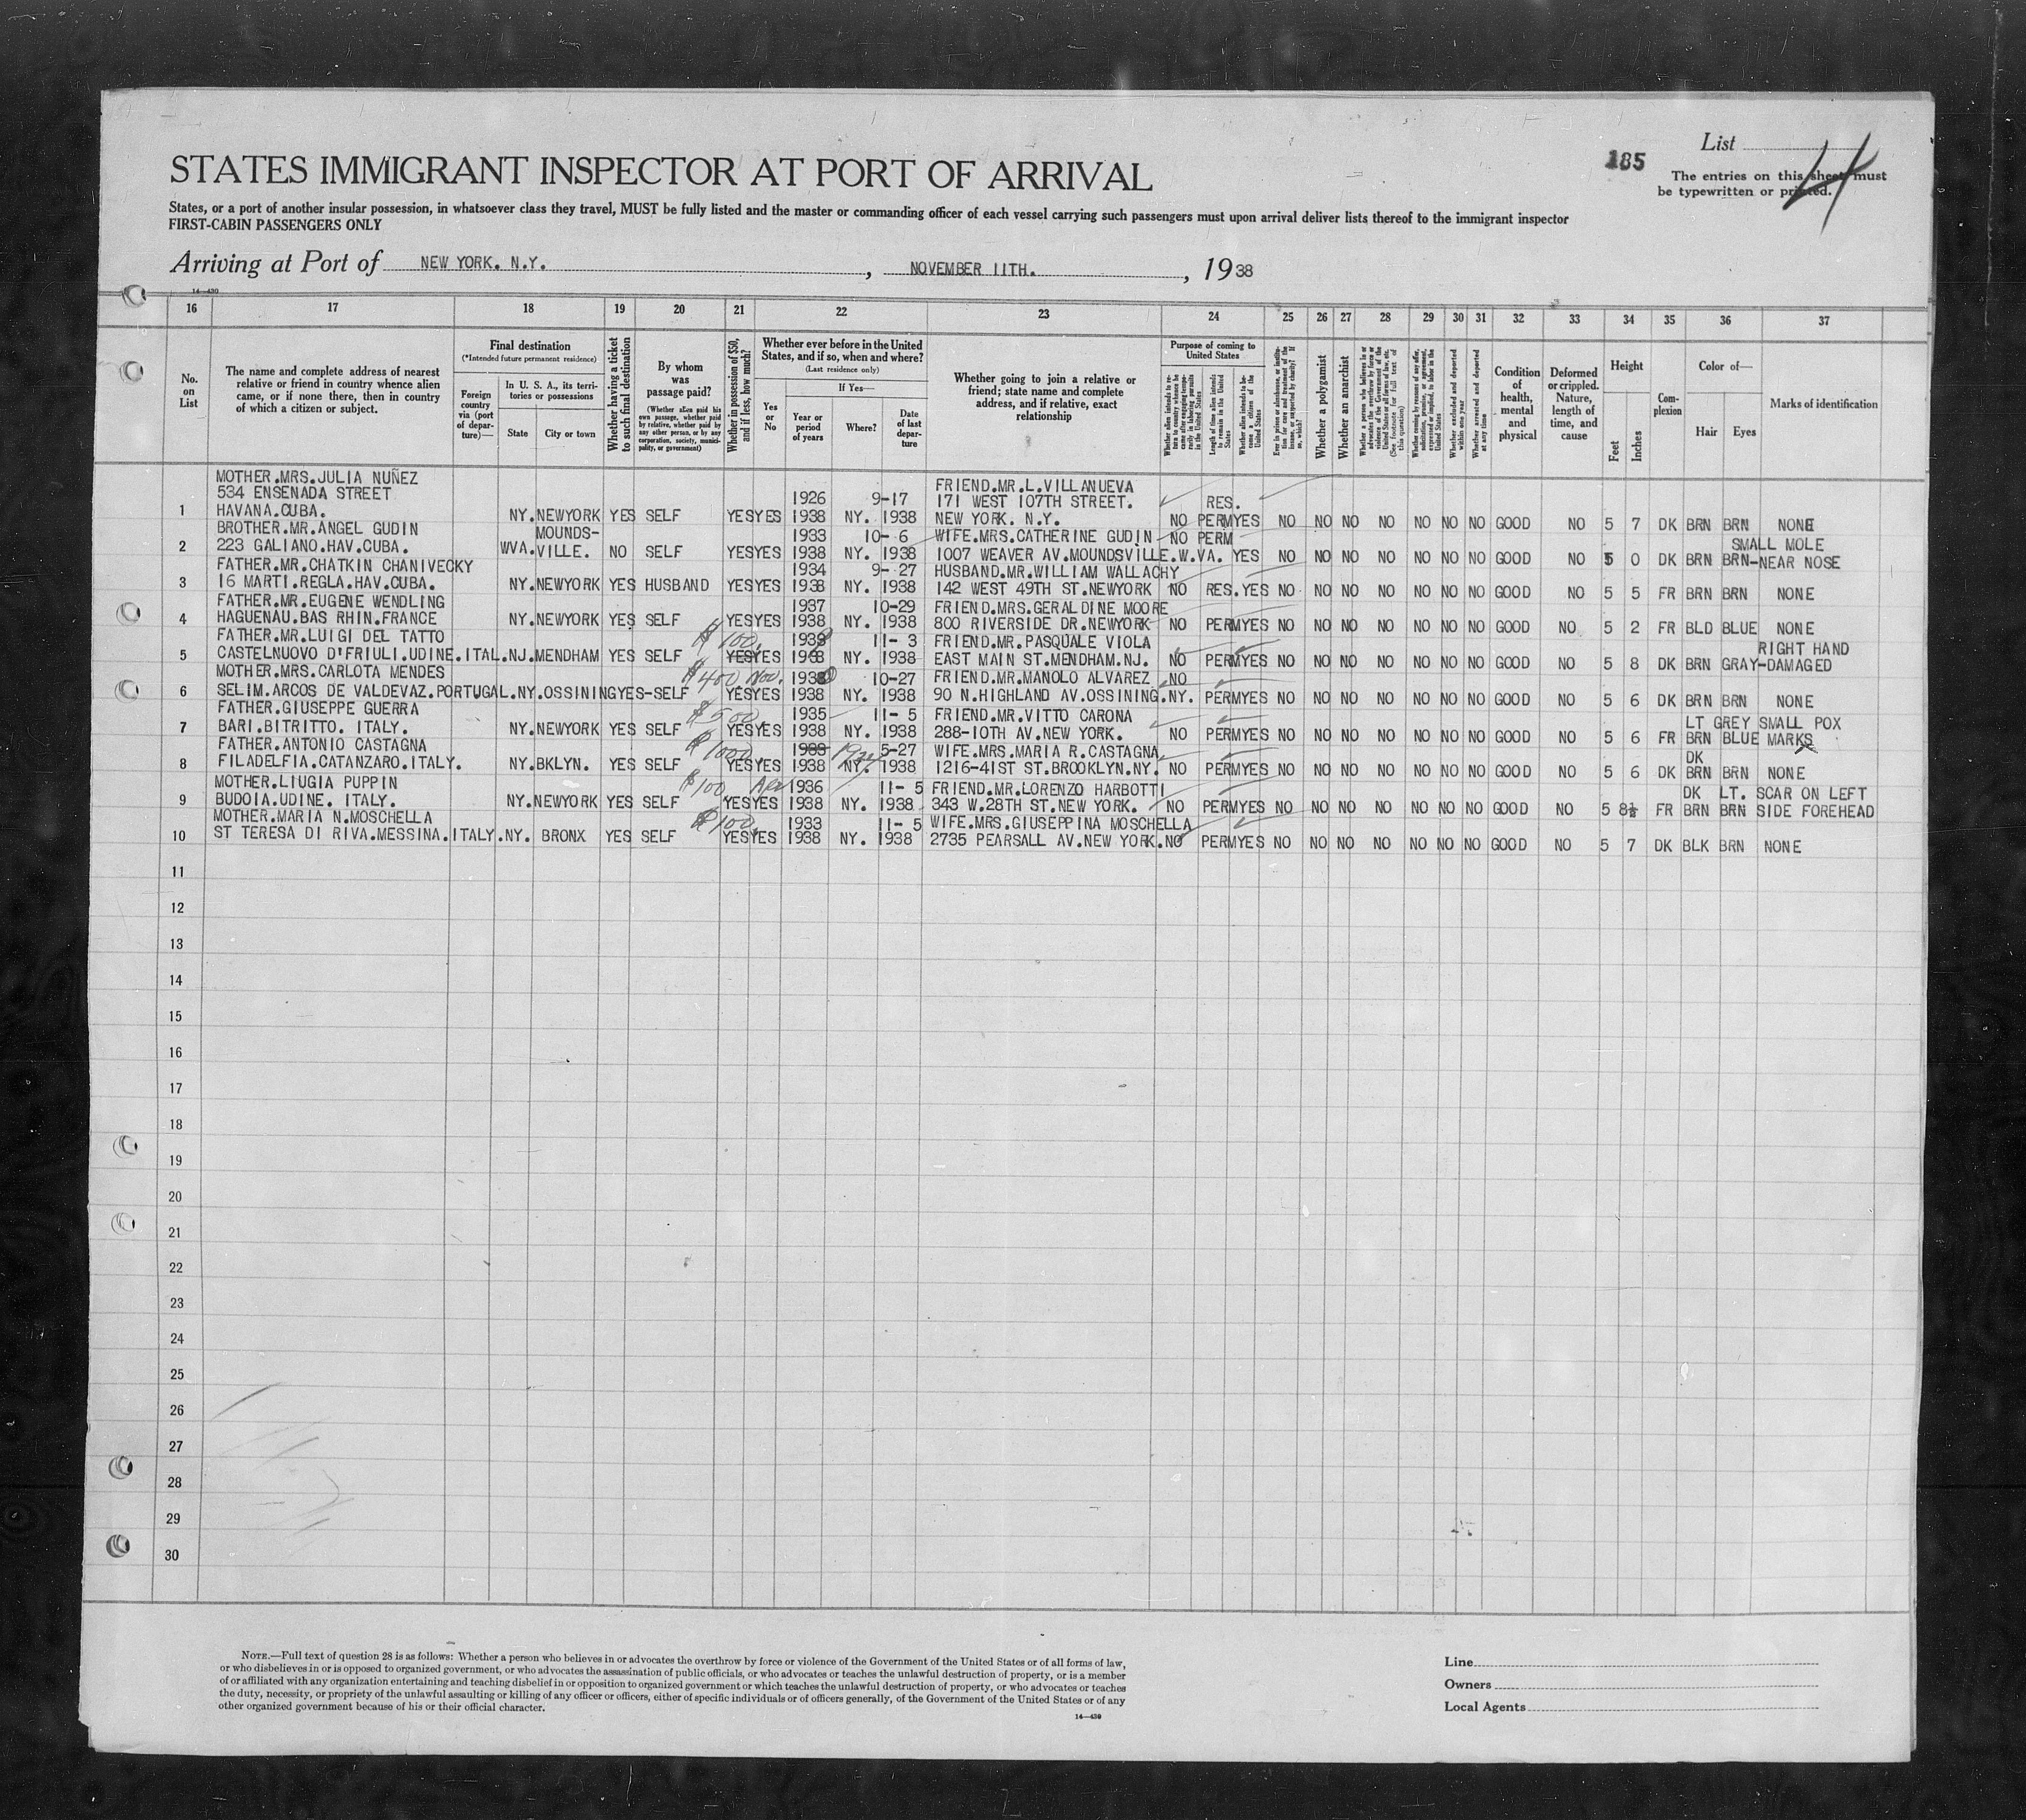 185
List 4
The entries on this sheet must
be typewritten or printed.
STATES IMMIGRANT INSPECTOR AT PORT OF ARRIVAL
States, or a port of another insular possession, in whatsoever class they travel, MUST be fully listed and the master or commanding officer of each vessel carrying such passengers must upon arrival deliver lists thereof to the immigrant inspector
FIRST-CABIN PASSENGERS ONLY
Arriving at Port of NEW YORK. N.Y. , NOVEMBER 11TH. , 1938
14—430
16 17 18 19 20 21 22 23 24 25 26 27 28 29 30 31 32 33 34 35 36 37
No. on List
The name and complete address of nearest relative or friend in country whence alien came, or if none there, then in country of which a citizen or subject.
Final destination
(*Intended future permanent residence)
Foreign country via (port of departure)—
In U. S. A., its territories or possessions
State
City or town
Whether having a ticket to such final destination
By whom was passage paid?
(Whether alien paid his own passage, whether paid by relative, whether paid by any other person, or by any corporation, society, municipality, or government)
Whether in possession of $50, and if less, how much?
Whether ever before in the United States, and if so, when and where?
(Last residence only)
Yes or No
If Yes—
Year or period of years
Where?
Date of last departure
Whether going to join a relative or friend; state name and complete address, and if relative, exact relationship
Purpose of coming to United States
Length of time alien intends to remain in the United States
Whether alien intends to become a citizen of the United States
Whether a polygamist
Whether an anarchist
Whether excluded and deported within one year
Whether arrested and deported at any time
Condition of health, mental and physical
Deformed or crippled. Nature, length of time, and cause
Height
Feet
Inches
Complexion
Color of—
Hair
Eyes
Marks of identification
MOTHER.MRS.JULIA NUÑEZ
534 ENSENADA STREET 1926 9-17 FRIEND.MR.L.VILLANUEVA
171 WEST 107TH STREET. RES.
1 HAVANA.CUBA. NY. NEWYORK YES SELF YES YES 1938 NY. 1938 NEW YORK. N.Y. NO PERM YES NO NO NO NO NO NO NO GOOD NO 5 7 DK BRN BRN NONE
BROTHER.MR.ANGEL GUDIN MOUNDS- 1933 10-6 WIFE.MRS.CATHERINE GUDIN NO PERM SMALL MOLE
2 223 GALIANO.HAV.CUBA. WVA. VILLE. NO SELF YES YES 1938 NY. 1938 1007 WEAVER AV.MOUNDSVILLE.W.VA. YES NO NO NO NO NO NO NO GOOD NO 5 0 DK BRN BRN-NEAR NOSE
FATHER.MR.CHATKIN CHANIVECKY 1934 9-27 HUSBAND.MR.WILLIAM WALLACHY
3 16 MARTI.REGLA.HAV.CUBA. NY. NEWYORK YES HUSBAND YES YES 1938 NY. 1938 142 WEST 49TH ST.NEWYORK NO RES. YES NO NO NO NO NO NO NO GOOD NO 5 5 FR BRN BRN NONE
FATHER.MR.EUGENE WENDLING 1937 10-29 FRIEND.MRS.GERALDINE MOORE
4 HAGUENAU.BAS RHIN.FRANCE NY. NEWYORK YES SELF YES YES 1938 NY. 1938 800 RIVERSIDE DR.NEWYORK NO PERM YES NO NO NO NO NO NO NO GOOD NO 5 2 FR BLD BLUE NONE
FATHER.MR.LUIGI DEL TATTO $100. 11-3 FRIEND.MR.PASQUALE VIOLA RIGHT HAND
5 CASTELNUOVO D'FRIULI.UDINE.ITAL. NJ. MENDHAM YES SELF YES YES 1938 NY. 1938 EAST MAIN ST.MENDHAM.NJ. NO PERM YES NO NO NO NO NO NO NO GOOD NO 5 8 DK BRN GRAY-DAMAGED
MOTHER.MRS.CARLOTA MENDES $400 Nov. 10-27 FRIEND.MR.MANOLO ALVAREZ NO
6 SELIM.ARCOS DE VALDEVAZ.PORTUGAL. NY. OSSINING YES-SELF YES YES 1938 NY. 1938 90 N.HIGHLAND AV.OSSINING.NY. PERM YES NO NO NO NO NO NO NO GOOD NO 5 6 DK BRN BRN NONE
FATHER.GIUSEPPE GUERRA $500. 1935 11-5 FRIEND.MR.VITTO CARONA LT GREY SMALL POX
7 BARI.BITRITTO. ITALY. NY. NEWYORK YES SELF YES YES 1938 NY. 1938 288-10TH AV.NEW YORK. NO PERM YES NO NO NO NO NO NO NO GOOD NO 5 6 FR BRN BLUE MARKS
FATHER.ANTONIO CASTAGNA $1000 5-27 WIFE.MRS.MARIA R.CASTAGNA DK
8 FILADELFIA.CATANZARO.ITALY. NY. BKLYN. YES SELF YES YES 1938 NY. 1938 1216-41ST ST.BROOKLYN.NY. NO PERM YES NO NO NO NO NO NO NO GOOD NO 5 6 DK BRN BRN NONE
MOTHER.LIUGIA PUPPIN $100 1936 11-5 FRIEND.MR.LORENZO HARBOTTI DK LT. SCAR ON LEFT
9 BUDOIA.UDINE. ITALY. NY. NEWYORK YES SELF YES YES 1938 NY. 1938 343 W.28TH ST.NEW YORK. NO PERM YES NO NO NO NO NO NO NO GOOD NO 5 8½ FR BRN BRN SIDE FOREHEAD
MOTHER.MARIA N.MOSCHELLA $100 1933 11-5 WIFE.MRS.GIUSEPPINA MOSCHELLA
10 ST TERESA DI RIVA.MESSINA.ITALY. NY. BRONX YES SELF YES YES 1938 NY. 1938 2735 PEARSALL AV.NEW YORK. NO PERM YES NO NO NO NO NO NO NO GOOD NO 5 7 DK BLK BRN NONE
11
12
13
14
15
16
17
18
19
20
21
22
23
24
25
26
27
28
29
30
NOTE.—Full text of question 28 is as follows: Whether a person who believes in or advocates the overthrow by force or violence of the Government of the United States or of all forms of law,
or who disbelieves in or is opposed to organized government, or who advocates the assassination of public officials, or who advocates or teaches the unlawful destruction of property, or is a member
of or affiliated with any organization entertaining and teaching disbelief in or opposition to organized government or which teaches the unlawful destruction of property, or who advocates or teaches
the duty, necessity, or propriety of the unlawful assaulting or killing of any officer or officers, either of specific individuals or of officers generally, of the Government of the United States or of any
other organized government because of his or their official character.
14—430
Line
Owners
Local Agents